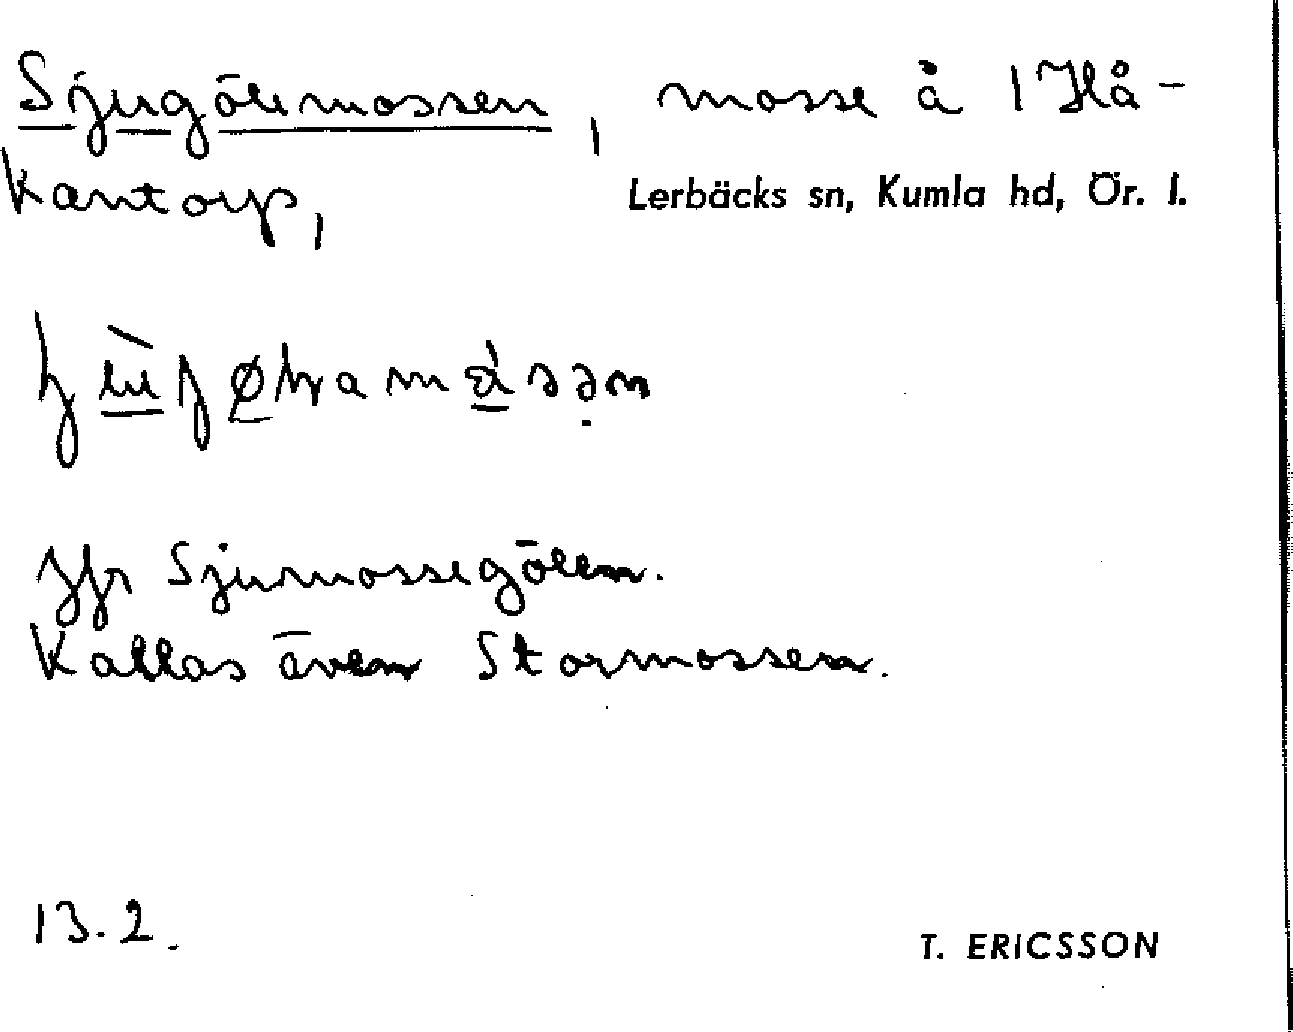 Sjugölemossen, mosse å 1 Hå-
kantorp,
Lerbäcks sn, Kumla hd, Ör. l.
Jfr Sjumossegölen.
Kallas även Stormossen.
13.2.
T. ERICSSON